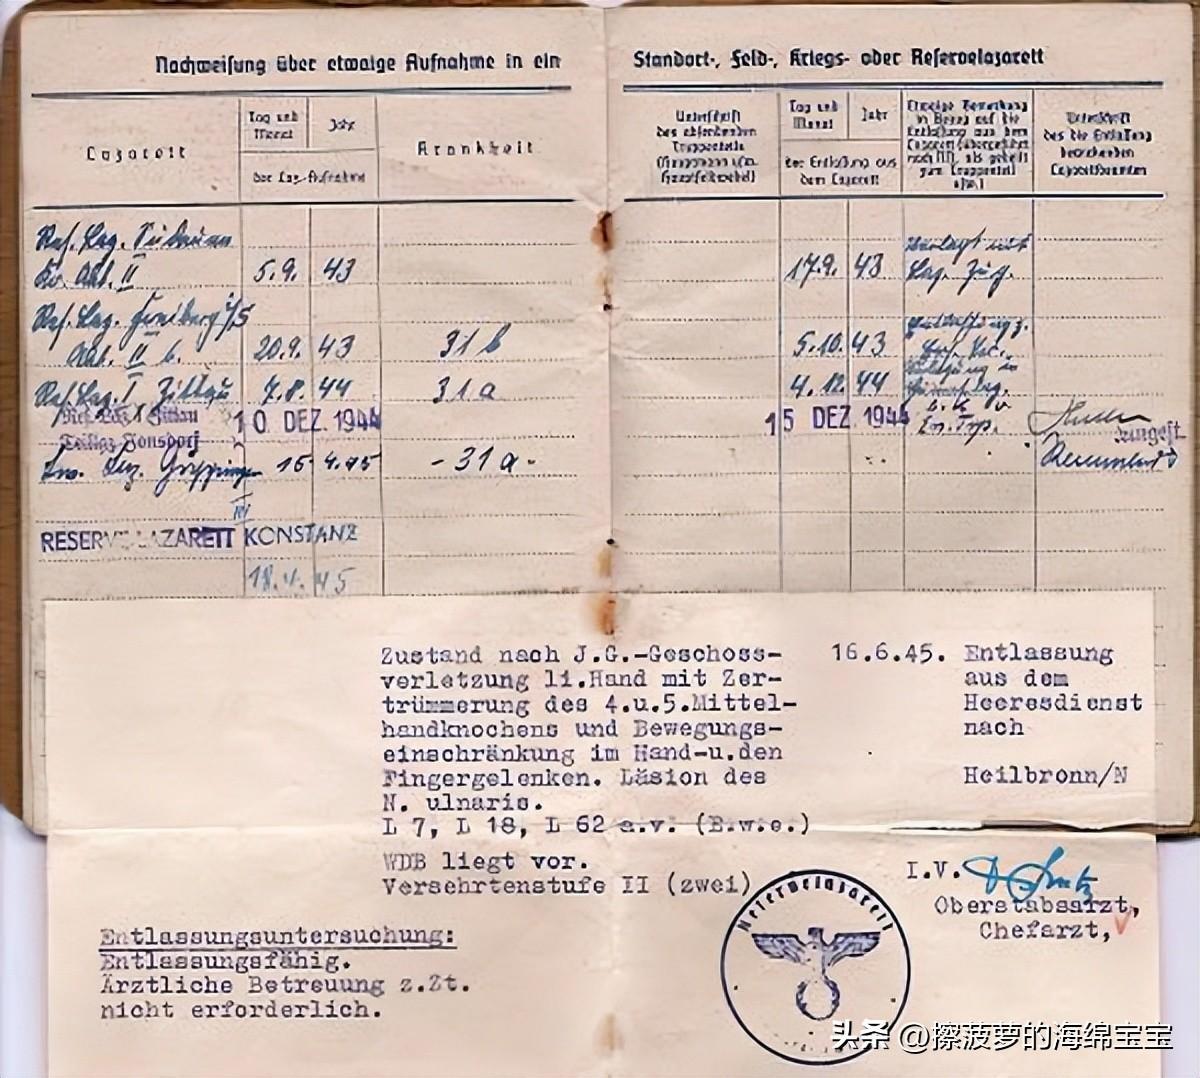 Nachweisung über etwaige Aufnahme in ein
Standort-, Feld-, Kriegs- oder Reservelazarett
Lazarett
Tag und Monat
Jahr
der Laz.-Aufnahme
Krankheit
Unterschrift
des absendenden
Truppenteils
Tag und Monat
Jahr
der Entlassung aus
dem Lazarett
Unterschrift
des die Entlassung
Lazarettbeamten
Res. Laz.
Abt. II 5.9. 43 17.9. 43
Laz. Zug.
Res. Laz. Freiberg i/S
Abt. II b. 20.9. 43 31 b 5.10. 43
Res. Laz. I Zittau 7.8. 44 31a 4.12. 44
Res. Laz. I Zittau
Teillaz. Jonsdorf 10 DEZ. 1944 15 DEZ. 1944
16. 4. 45 - 31a -
III
RESERVE-LAZARETT KONSTANZ
18.4. 45
Zustand nach J.G.-Geschoss-
verletzung li.Hand mit Zer-
trümmerung des 4.u.5.Mittel-
handknochens und Bewegungs-
einschränkung im Hand-u.den
Fingergelenken. Läsion des
N. ulnaris.
L 7, L 18, L 62 a.v. (B.w.e.)
WDB liegt vor.
Versehrtenstufe II (zwei)
16.6.45. Entlassung
aus dem
Heeresdienst
nach
Heilbronn/N
I.V.
Oberstabsarzt,
Chefarzt,
Entlassungsuntersuchung:
Entlassungsfähig.
Ärztliche Betreuung z.Zt.
nicht erforderlich.
Reservelazarett
头条 @擦菠萝的海绵宝宝